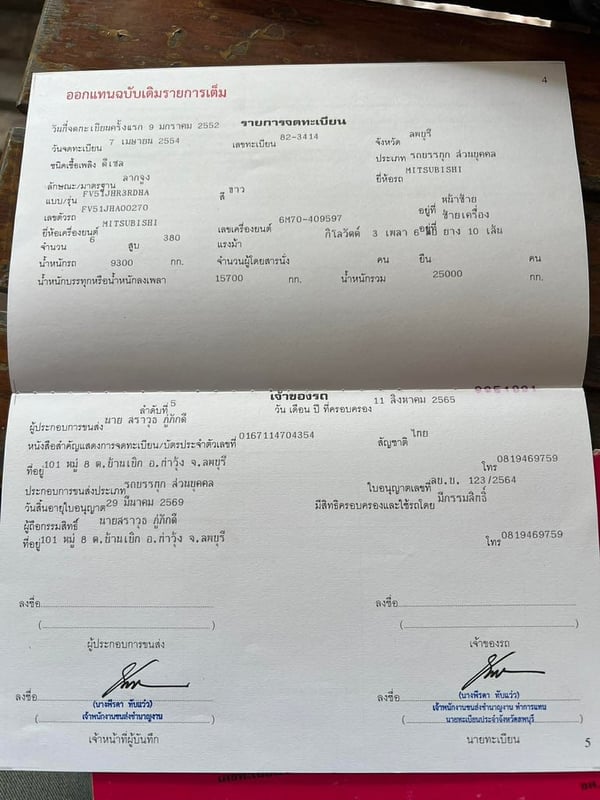 4
ออกแทนฉบับเดิมรายการเต็ม
รายการจดทะเบียน
วันที่จดทะเบียนครั้งแรก 9 มกราคม 2552
วันจดทะเบียน 7 เมษายน 2554 เลขทะเบียน 82-3414 จังหวัด ลพบุรี
ชนิดเชื้อเพลิง ดีเซล ประเภท รถบรรทุก ส่วนบุคคล
ลักษณะ/มาตรฐาน ลากจูง สี ขาว ยี่ห้อรถ MITSUBISHI
แบบ/รุ่น FV51JHR3RDHA
เลขตัวรถ FV51JHA00270 อยู่ที่ หน้าซ้าย
ยี่ห้อเครื่องยนต์ MITSUBISHI เลขเครื่องยนต์ 6M70-409597 อยู่ที่ ซ้ายเครื่อง
จำนวน 6 สูบ 380 แรงม้า กิโลวัตต์ 3 เพลา 6 ล้อ ยาง 10 เส้น
น้ำหนักรถ 9300 กก. จำนวนผู้โดยสารนั่ง คน ยืน คน
น้ำหนักบรรทุกหรือน้ำหนักลงเพลา 15700 กก. น้ำหนักรวม 25000 กก.
เจ้าของรถ
ลำดับที่ 5 วัน เดือน ปี ที่ครอบครอง 11 สิงหาคม 2565
ผู้ประกอบการขนส่ง นาย สราวุธ ภู่ภักดี
หนังสือสำคัญแสดงการจดทะเบียน/บัตรประจำตัวเลขที่ 0167114704354 สัญชาติ ไทย
ที่อยู่ 101 หมู่ 8 ต.ย้านเยิก อ.ท่าวุ้ง จ.ลพบุรี โทร 0819469759
ประกอบการขนส่งประเภท รถบรรทุก ส่วนบุคคล ใบอนุญาตเลขที่ ลบ.บ. 123/2564
วันสิ้นอายุใบอนุญาต 29 มีนาคม 2569 มีสิทธิครอบครองและใช้รถโดย มีกรรมสิทธิ์
ผู้ถือกรรมสิทธิ์ นายสราวุธ ภู่ภักดี
ที่อยู่ 101 หมู่ 8 ต.ย้านเยิก อ.ท่าวุ้ง จ.ลพบุรี โทร 0819469759
ลงชื่อ ลงชื่อ
( ) ( )
ผู้ประกอบการขนส่ง เจ้าของรถ
ลงชื่อ ลงชื่อ
(นางพีรดา ทับแว่ว) (นางพีรดา ทับแว่ว)
เจ้าพนักงานขนส่งชำนาญงาน เจ้าพนักงานขนส่งชำนาญงาน ทำการแทน
นายทะเบียนประจำจังหวัดลพบุรี
เจ้าหน้าที่ผู้บันทึก นายทะเบียน
5